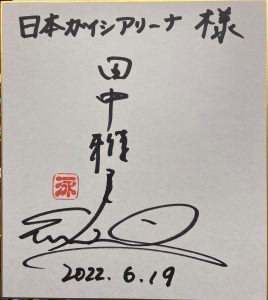 日本ガイシアリーナ 様
田中雅
泳
2022.6.19